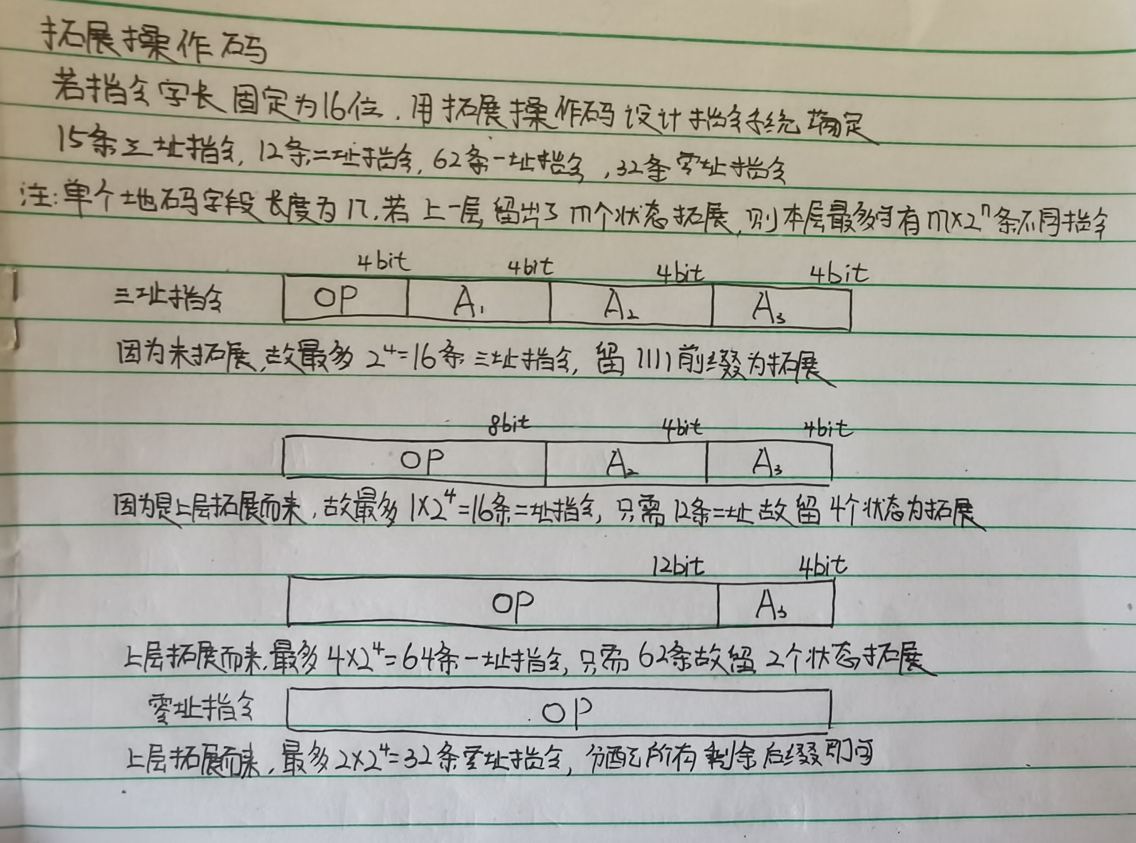 拓展操作码
若指令字长固定为16位，用拓展操作码设计指令系统满足
15条三址指令，12条二址指令，62条一址指令，32条零址指令
注：单个地码字段长度为n，若上一层留出了m个状态拓展，则本层最多可有m×2ⁿ条不同指令
4bit 4bit 4bit 4bit
三址指令 OP A₁ A₂ A₃
因为未拓展，故最多2⁴=16条三址指令，留1111前缀为拓展
8bit 4bit 4bit
OP A₂ A₃
因为是上层拓展而来，故最多1×2⁴=16条二址指令，只需12条二址故留4个状态为拓展
12bit 4bit
OP A₃
上层拓展而来，最多4×2⁴=64条一址指令，只需62条故留2个状态拓展
零址指令 OP
上层拓展而来，最多2×2⁴=32条零址指令，分配所有剩余后缀即可